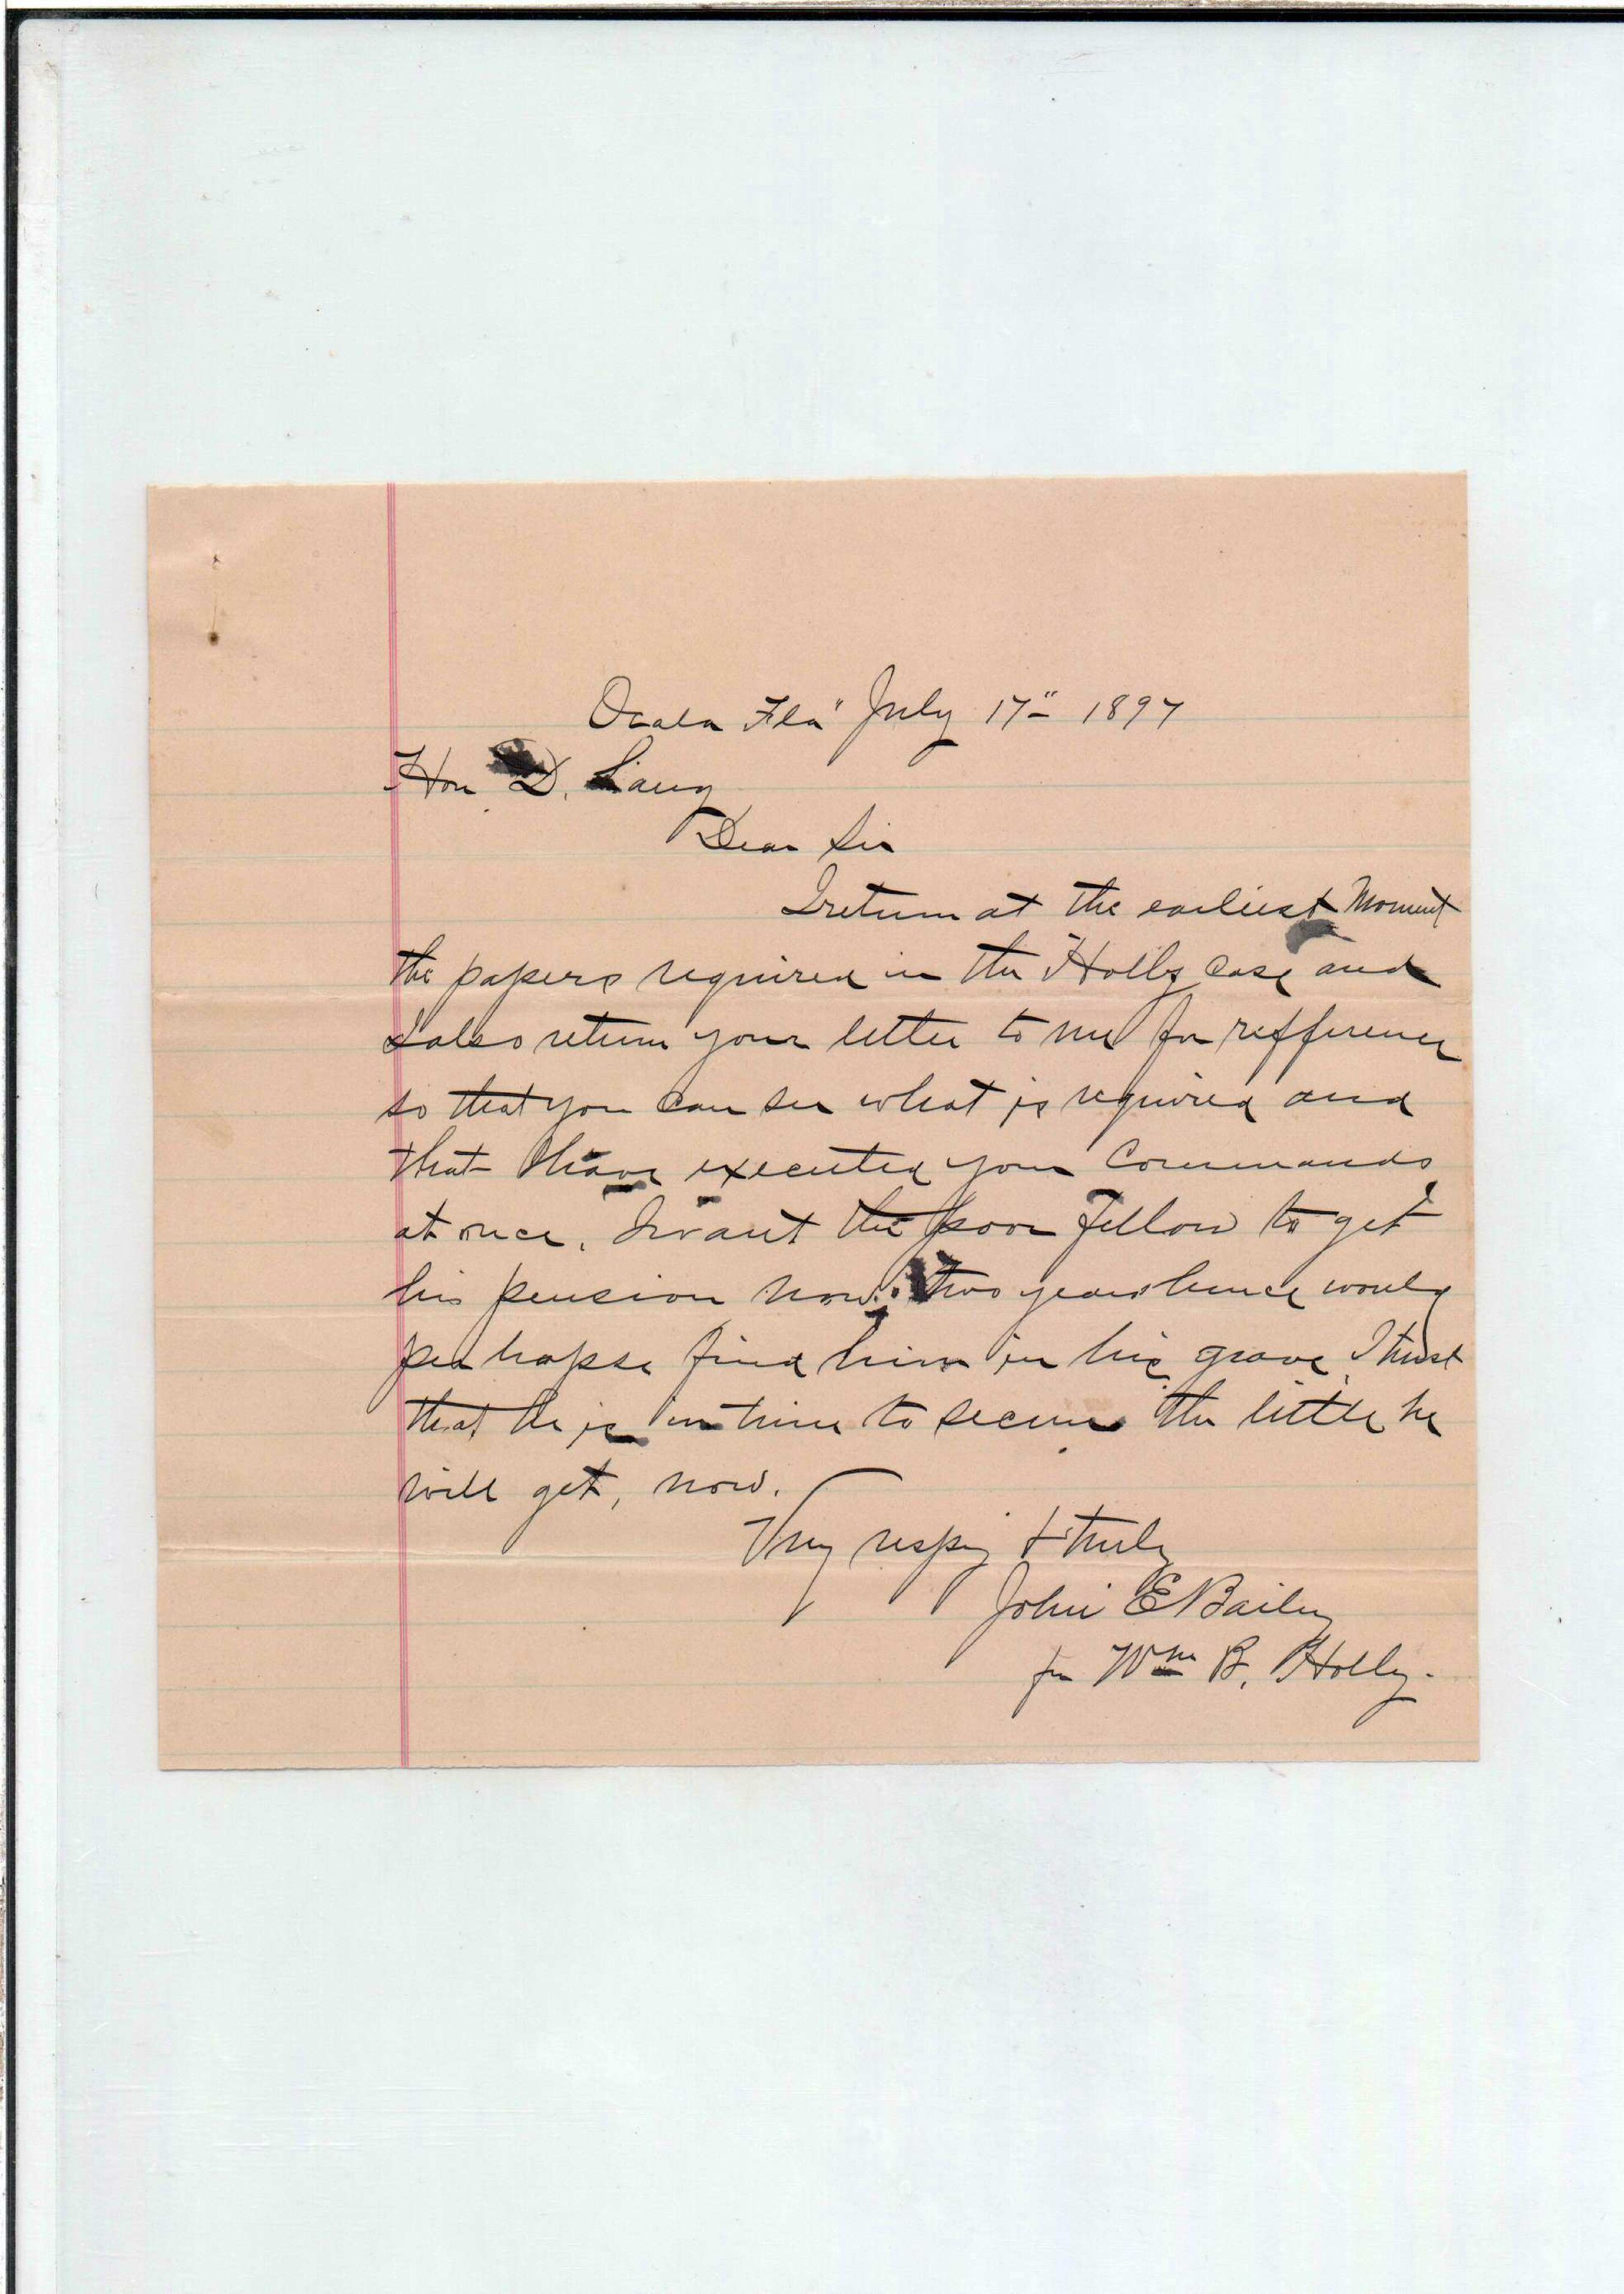 Ocala Fla" July 17" 1897
Hon D. Lang
Dear Sir
I return at the earliest Moment
the papers required in the Holly case and
I also return your letter to me for refference
so that you can see what is required and
that I have executed your Commands
at once. I want the poor fellow to get
his pension now. two years hence would
perhapse find him in his grave. I trust
that he is in time to secure the little he
will get, now.
Very respy & truly
John E Bailey
for Wm B. Holly.